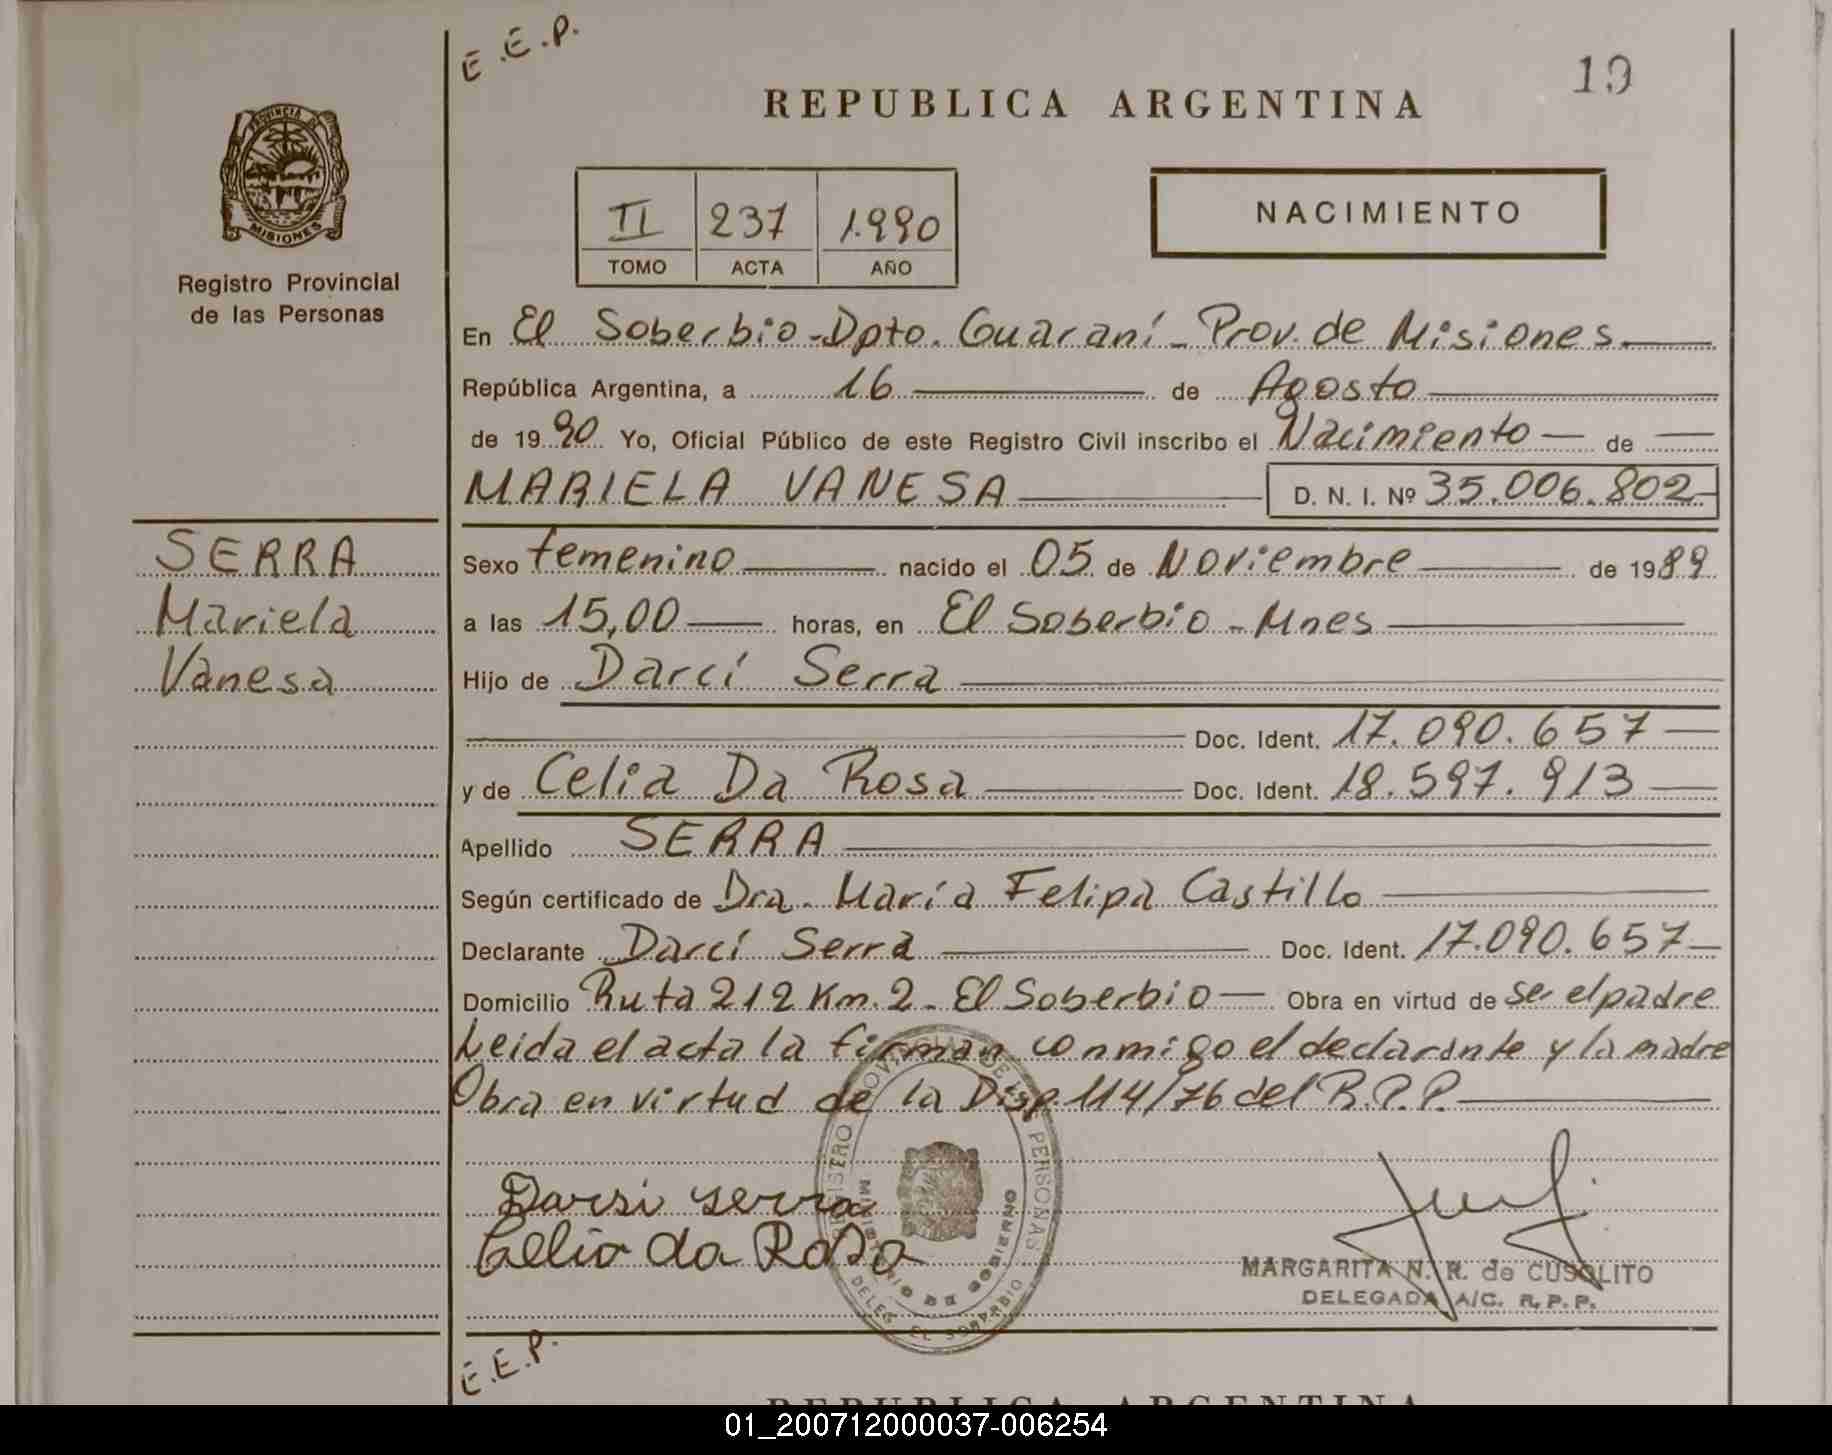 E.E.P.
19
REPUBLICA ARGENTINA
PROVINCIA DE
MISIONES
Registro Provincial
de las Personas
II 237 1.990
TOMO ACTA AÑO
NACIMIENTO
En El Soberbio-Dpto. Guaraní - Prov. de Misiones.
República Argentina, a 16 de Agosto
de 1990 Yo, Oficial Público de este Registro Civil inscribo el Nacimiento de
MARIELA VANESA D. N. I. Nº 35.006.802
SERRA
Mariela
Vanesa
Sexo femenino nacido el 05 de Noviembre de 1989
a las 15,00 horas, en El Soberbio - Mnes
Hijo de Darcí Serra
Doc. Ident. 17.090.657
y de Celia Da Rosa Doc. Ident. 18.597.913
Apellido SERRA
Según certificado de Dra. María Felipa Castillo
Declarante Darcí Serra Doc. Ident. 17.090.657
Domicilio Ruta 212 Km. 2 - El Soberbio Obra en virtud de ser el padre
Leida el acta la firman conmigo el declarante y la madre
Obra en virtud de la Disp. 114/76 del R.P.P.
Darsi serra
Celia da Rosa
REGISTRO PROVINCIAL DE LAS PERSONAS
MINISTERIO DE GOBIERNO
DELEG. EL SOBERBIO
MARGARITA N. R. de CUSOLITO
DELEGADA A/C. R.P.P.
E.E.P.
REPUBLICA ARGENTINA
01_200712000037-006254